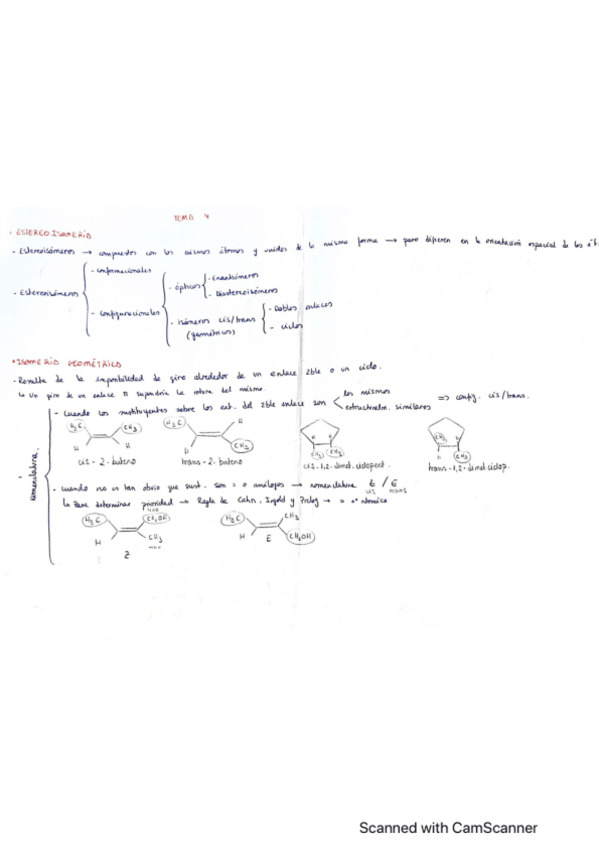 TEMA 4
· ESTEREOISOMERÍA
- Estereoisómeros → compuestos con los mismos átomos y unidos de la misma forma → pero difieren en la orientación espacial de los át.
- Estereoisómeros
- conformacionales
- configuracionales
- ópticos
- Enantiómeros
- Diastereoisómeros
- isómeros cis/trans (geométricos)
- Dobles enlaces
- ciclos
* ISOMERÍA GEOMÉTRICA
- Resulta de la imposibilidad de giro alrededor de un enlace 2ble o un ciclo.
↳ Un giro de un enlace π supondría la rotura del mismo.
- nomenclatura.
- Cuando los sustituyentes sobre los ext. del 2ble enlace son
los mismos
estructuralm. similares
=> config. cis/trans.
H3C CH3 H3C H
H H CH3 H H H
CH3 CH3 H CH3
cis - 2 - buteno trans - 2 - buteno cis-1,2-dimet.ciclopent. trans-1,2-dimet.ciclop.
- cuando no es tan obvio que sust. son = o análogos → nomenclatura Z / E
cis trans
↳ Para determinar prioridad → Regla de Cahn, Ingold y Prelog → > nº atómico
H3C CH2OH H3C CH3
H CH3 H E CH2OH
Z